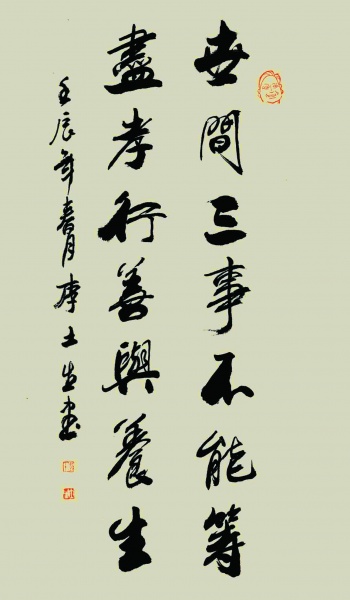 世間三事不能等
盡孝行善與養生
壬辰年春月李土生書